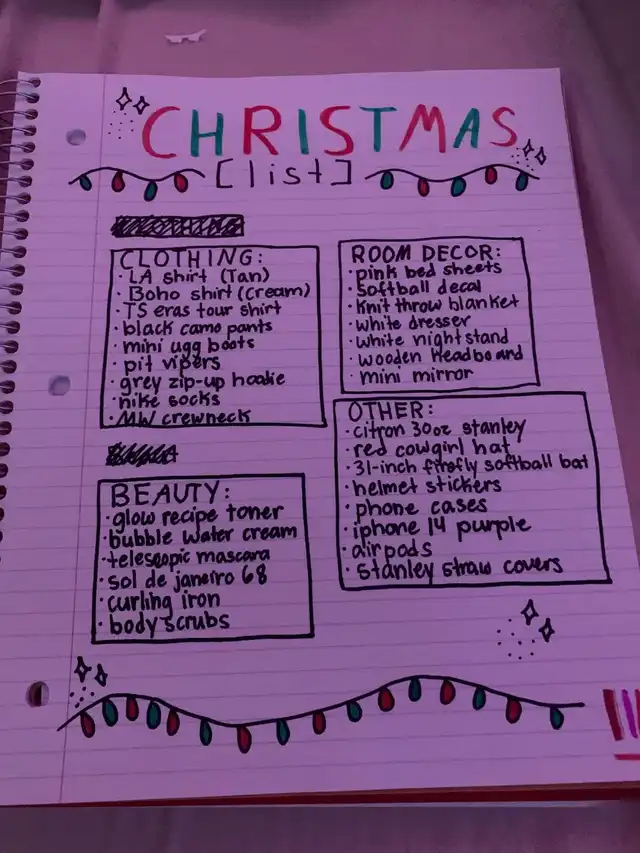 CHRISTMAS
[list]
CLOTHING:
· LA shirt (Tan)
· Boho shirt (Cream)
· TS eras tour shirt
· black camo pants
· mini ugg boots
· pit vipers
· grey zip-up hoodie
· nike socks
· MW crewneck
BEAUTY:
· glow recipe toner
· bubble water cream
· telescopic mascara
· sol de janeiro 68
· curling iron
· body scrubs
ROOM DECOR:
· pink bed sheets
· softball decal
· knit throw blanket
· white dresser
· white night stand
· wooden headboard
· mini mirror
OTHER:
· citron 30oz stanley
· red cowgirl hat
· 31-inch firefly softball bat
· helmet stickers
· phone cases
· iphone 14 purple
· airpods
· stanley straw covers